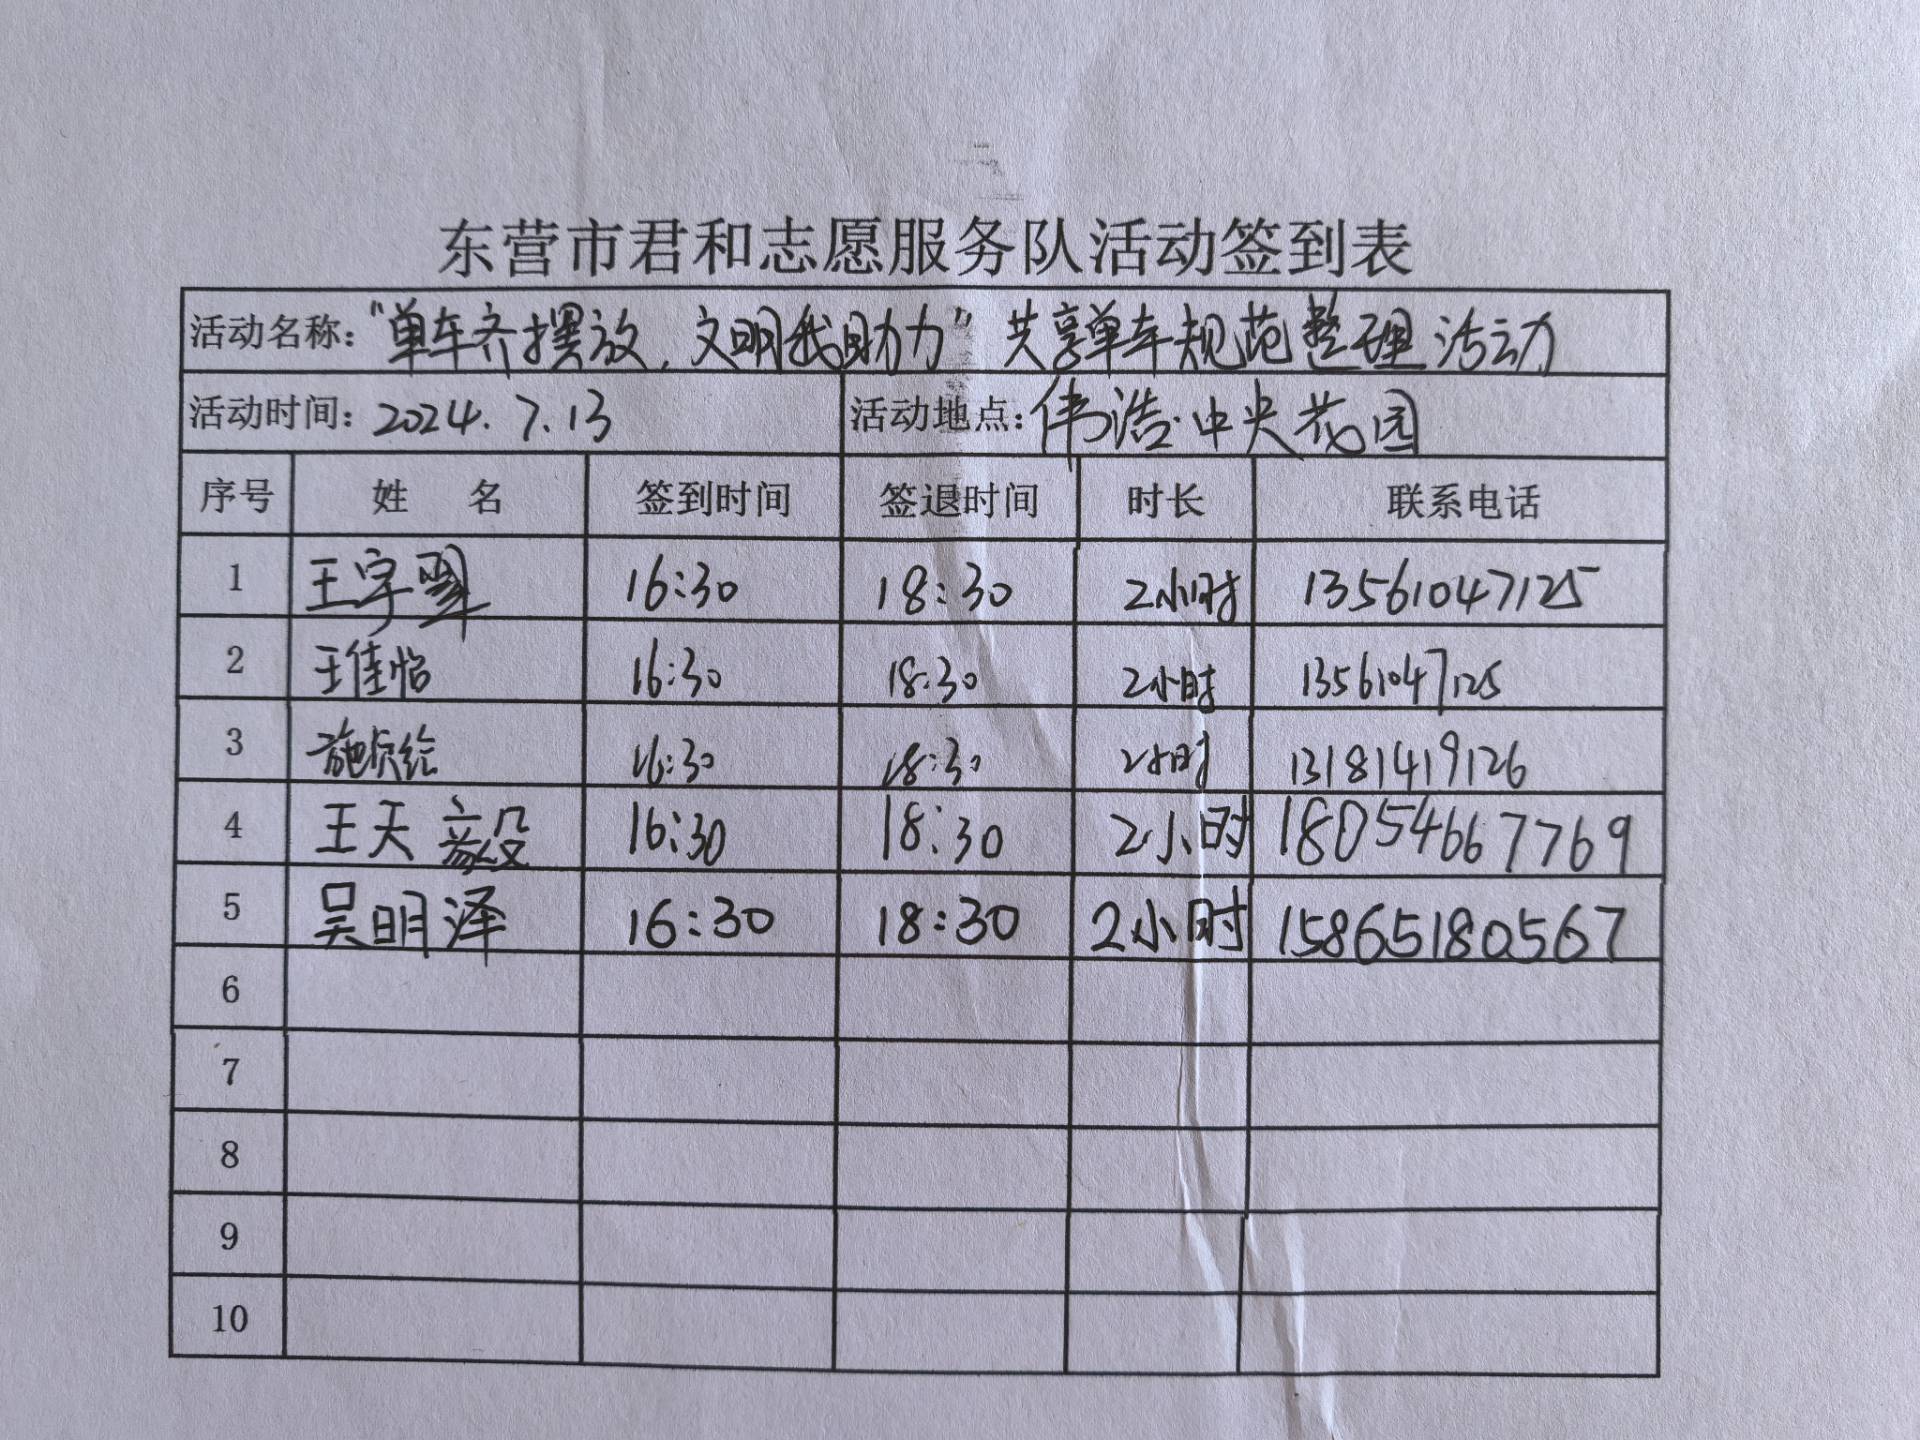 东营市君和志愿服务队活动签到表
活动名称：“单车齐摆放，文明我助力”共享单车规范整理活动
活动时间：2024.7.13 活动地点：伟浩·中央花园
序号 姓 名 签到时间 签退时间 时长 联系电话
1 王宇 16:30 18:30 2小时 13561047125
2 王佳怡 16:30 18:30 2小时 13561047125
3 施贞绘 16:30 18:30 2小时 13181419126
4 王天毅 16:30 18:30 2小时 18054667769
5 吴明泽 16:30 18:30 2小时 15865180567
6
7
8
9
10